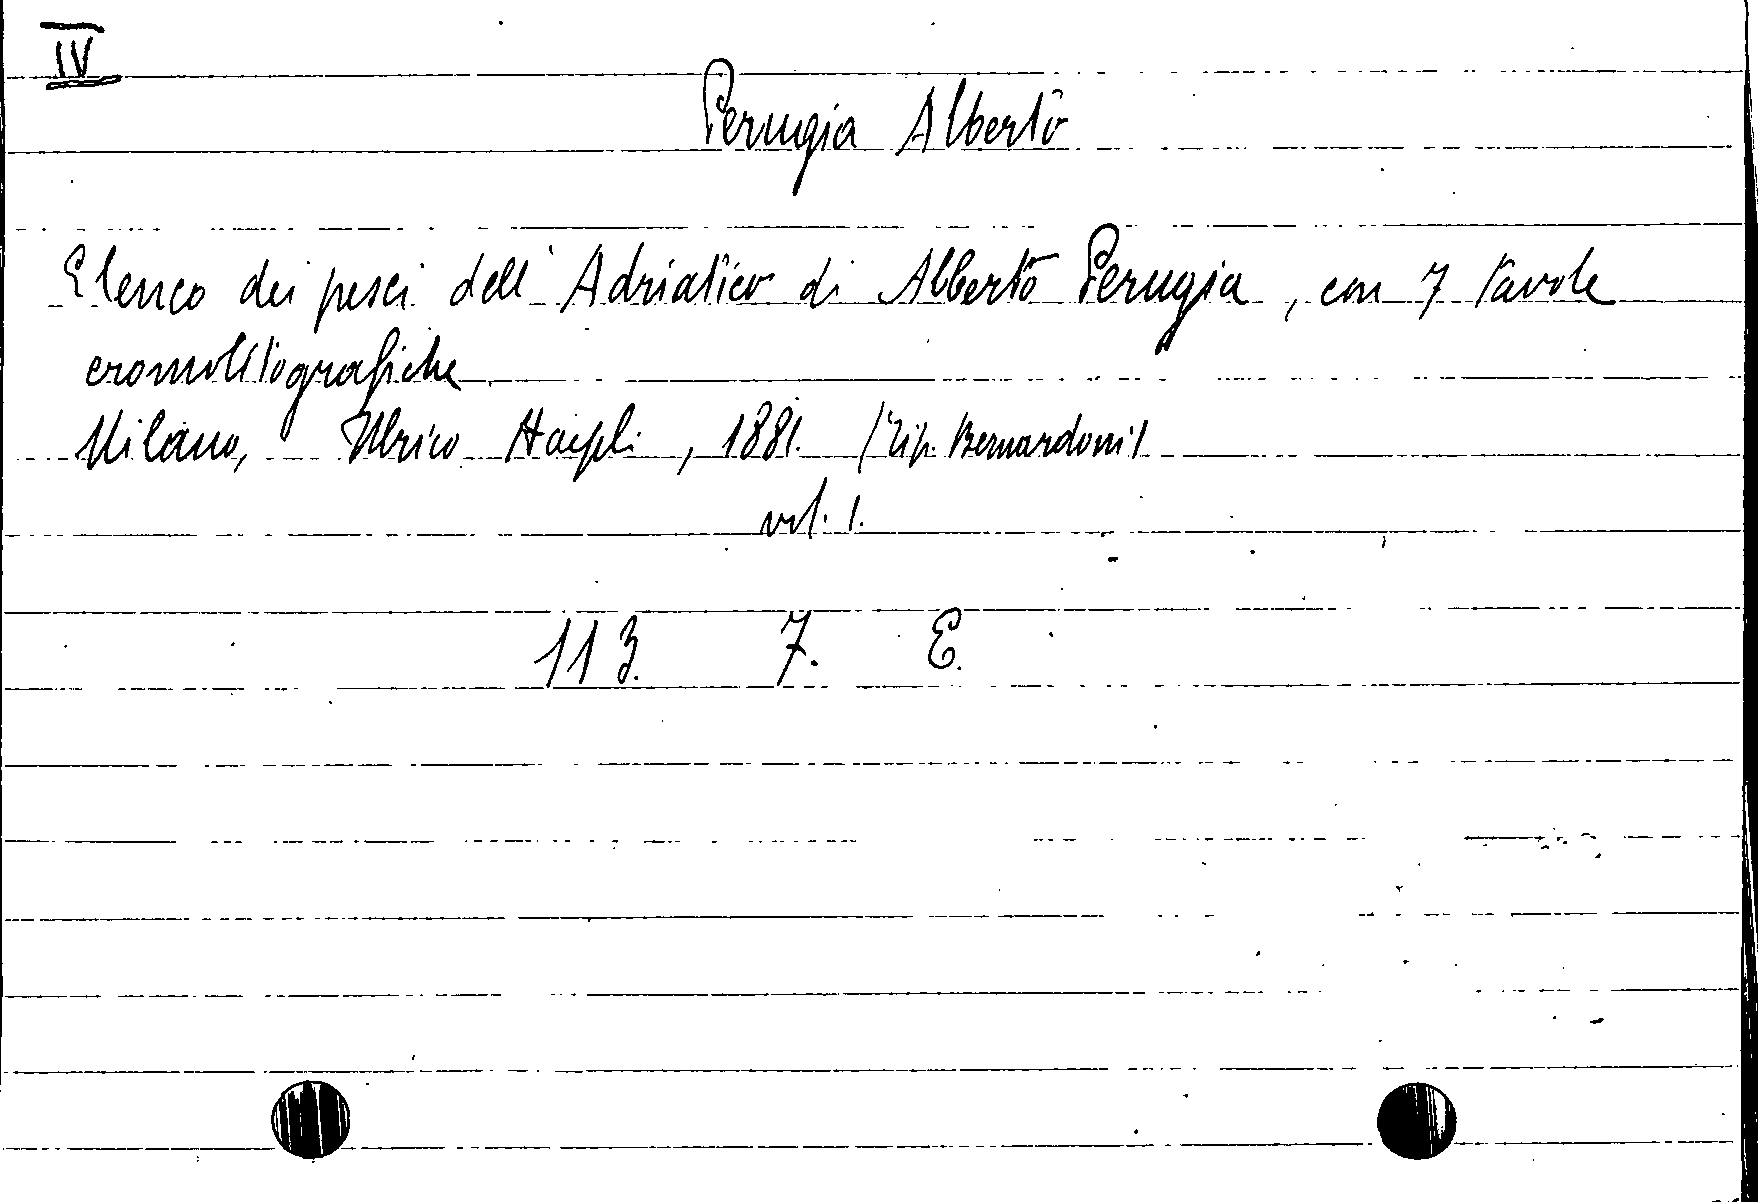 IV
Perugia Alberto
Elenco dei pesci dell'Adriatico di Alberto Perugia, con 7 tavole
cromolitografiche
Milano, Ulrico Hoepli, 1881. (Tip. Bernardoni)
vol. 1.
113. 7. E.